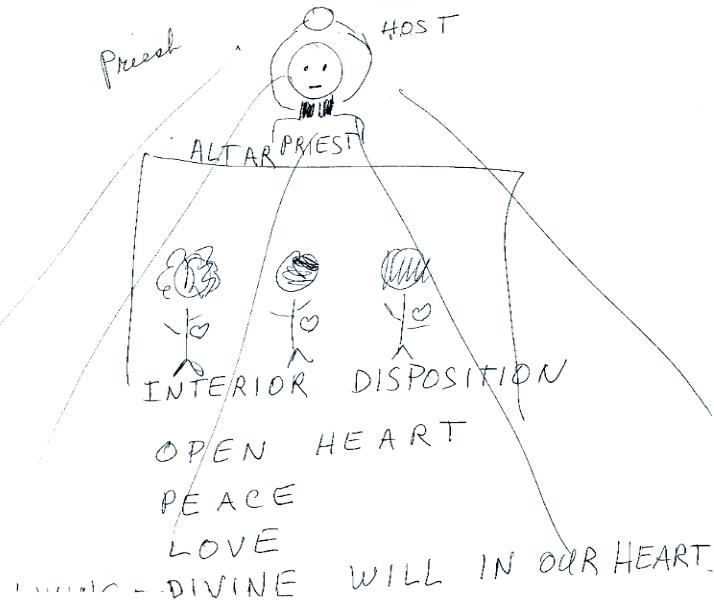 Priest
HOST
ALTAR PRIEST
INTERIOR DISPOSITION
OPEN HEART
PEACE
LOVE
DIVINE WILL IN OUR HEART.